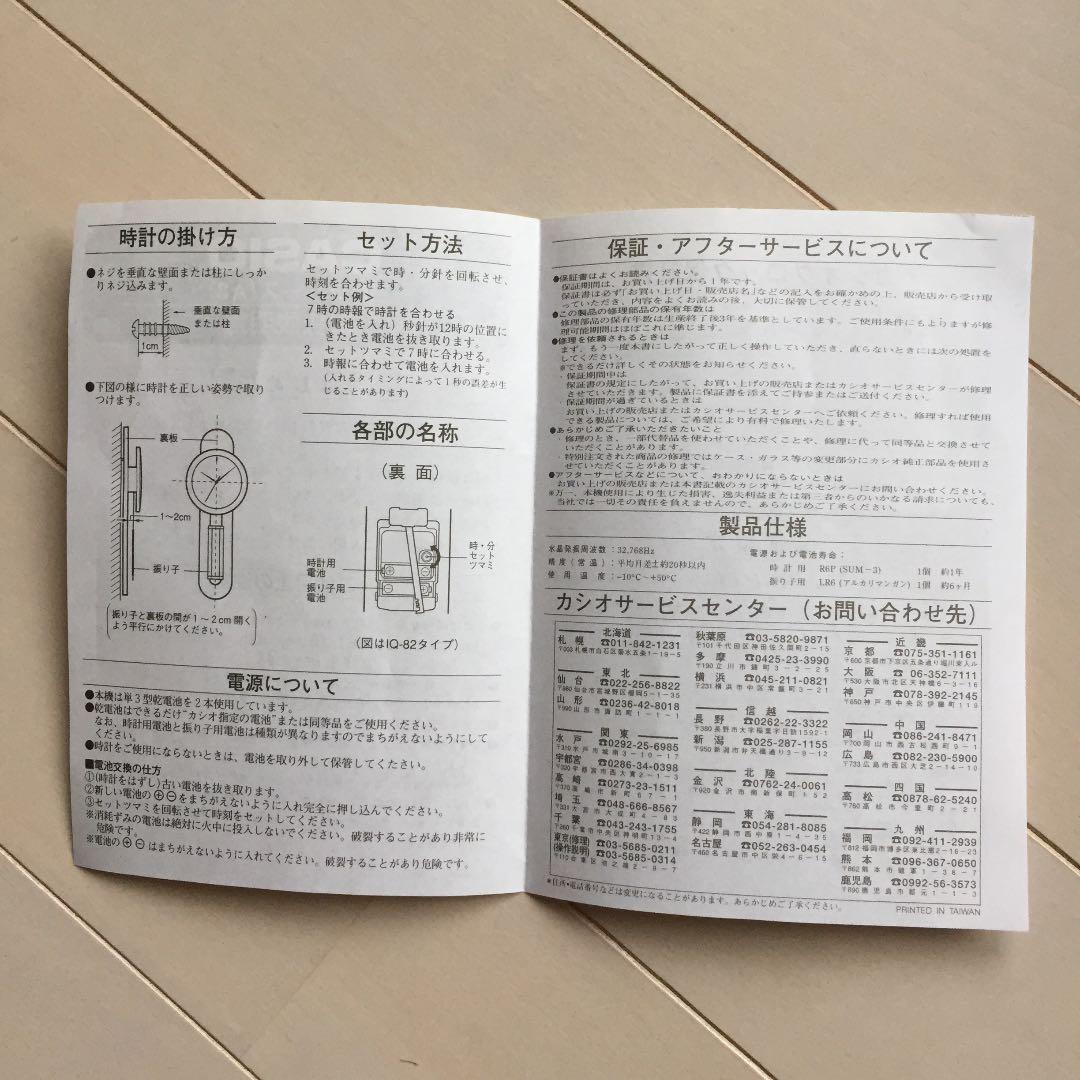 時計の掛け方
●ネジを垂直な壁面または柱にしっか
りネジ込みます。
垂直な壁面
または柱
1cm
●下図の様に時計を正しい姿勢で取り
つけます。
裏板
1~2cm
振り子
振り子と裏板の間が1~2cm開く
よう平行にかけてください。
セット方法
セットツマミで時・分針を回転させ、
時刻を合わせます。
<セット例>
7時の時報で時計を合わせる
1. (電池を入れ)秒針が12時の位置に
きたとき電池を抜き取ります。
2. セットツマミで7時に合わせる。
3. 時報に合わせて電池を入れます。
(入れるタイミングによって1秒の誤差が生
じることがあります)
各部の名称
(裏面)
時計用
電池
振り子用
電池
時・分
セット
ツマミ
(図はIQ-82タイプ)
電源について
●本機は単3型乾電池を2本使用しています。
●乾電池はできるだけ"カシオ指定の電池"または同等品をご使用ください。
なお、時計用電池と振り子用電池は種類が異なりますのでまちがえないようにして
ください。
●時計をご使用にならないときは、電池を取り外して保管してください。
■電池交換の仕方
①(時計をはずし)古い電池を抜き取ります。
②新しい電池の⊕⊖をまちがえないように入れ完全に押し込んでください。
③セットツマミを回転させて時刻をセットしてください。
※消耗ずみの電池は絶対に火中に投入しないでください。破裂することがあり非常に
危険です。
※電池の⊕⊖はまちがえないように入れてください。破裂することがあり危険です。
保証・アフターサービスについて
●保証書はよくお読みください。
保証期間は、お買い上げ日から1年です。
保証書は必ず「お買い上げ日・販売店名」などの記入をお確かめの上、販売店から受け取
っていただき、内容をよくお読みの後、大切に保管してください。
●この製品の修理部品の保有年数は
修理部品の保有年数は生産終了後3年を基準としています。ご使用条件にもよりますが修
理可能期間はほぼこれに準じます。
●修理を依頼されるときは
まず、もう一度本書にしたがって正しく操作していただき、直らないときには次の処置を
してください。
※できるだけ詳しくその状態をお知らせください。
・保証期間中は
保証書の規定にしたがって、お買い上げの販売店またはカシオサービスセンターが修理
させていただきます。製品に保証書を添えてご持参またはご送付ください。
・保証期間が過ぎているときは
お買い上げの販売店またはカシオサービスセンターへご依頼ください。修理すれば使用
できる製品については、ご希望により有料で修理いたします。
●あらかじめご了承いただきたいこと
・修理のとき、一部代替品を使わせていただくことや、修理に代って同等品と交換させて
いただくことがあります。
・特別注文された商品の修理ではケース・ガラス等の変更部分にカシオ純正部品を使用さ
せていただくことがあります。
●アフターサービスなどについて、おわかりにならないときは
お買い上げの販売店または本書記載のカシオサービスセンターにお問い合わせください。
※万一、本機使用により生じた損害、逸失利益または第三者からのいかなる請求についても、
当社では一切その責任を負えませんので、あらかじめご了承ください。
製品仕様
水晶発振周波数:32,768Hz
精度(常温):平均月差±約20秒以内
使用温度:-10℃~+50℃
電源および電池寿命:
時計用 R6P (SUM-3) 1個 約1年
振り子用 LR6 (アルカリマンガン) 1個 約6ヶ月
カシオサービスセンター(お問い合わせ先)
北海道
札幌 ☎011-842-1231
東北
仙台 ☎022-256-8822
山形 ☎0236-42-8018
関東
水戸 ☎0292-25-6985
宇都宮 ☎0286-34-0398
高崎 ☎0273-23-1511
埼玉 ☎048-666-8567
千葉 ☎043-243-1755
東京(修理) ☎03-5685-0211
(操作説明) ☎03-5685-0314
秋葉原 ☎03-5820-9871
多摩 ☎0425-23-3990
横浜 ☎045-211-0821
信越
長野 ☎0262-22-3322
新潟 ☎025-287-1155
北陸
金沢 ☎0762-24-0061
東海
静岡 ☎054-281-8085
名古屋 ☎052-263-0454
近畿
京都 ☎075-351-1161
大阪 ☎06-352-7111
神戸 ☎078-392-2145
中国
岡山 ☎086-241-8471
広島 ☎082-230-5900
四国
高松 ☎0878-62-5240
九州
福岡 ☎092-411-2939
熊本 ☎096-367-0650
鹿児島 ☎0992-56-3573
*住所・電話番号などは変更になることがあります。あらかじめご了承ください。
PRINTED IN TAIWAN